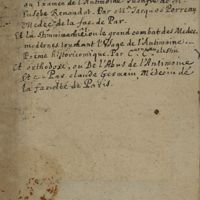 ou Examen de l'Antimoine Justifié de Mr
Eusebe Renaudot. Par Mr. Jacques Perreau
Medec. de la fac. de Par.
Et la Stimmimachie ou le grand combat des Medec.
modernes touchant l'Usage de l'Antimoine.
Poëme historicomique. Par
Et orthodoxe, ou De l'Abus de l'Antimoine
Etc. Par claude Germain Médecin de
la faculté de Paris.